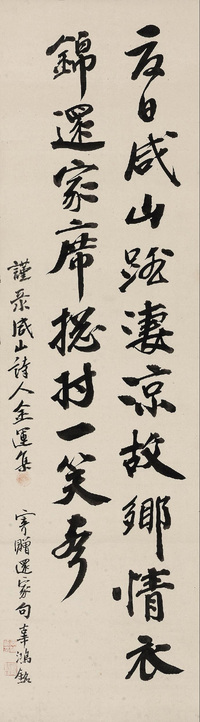 夏日咸山路淒凉故鄉情衣
錦還家席揔村一笑
謹录咸山詩人金運集
寄贈還家句辜鴻銘